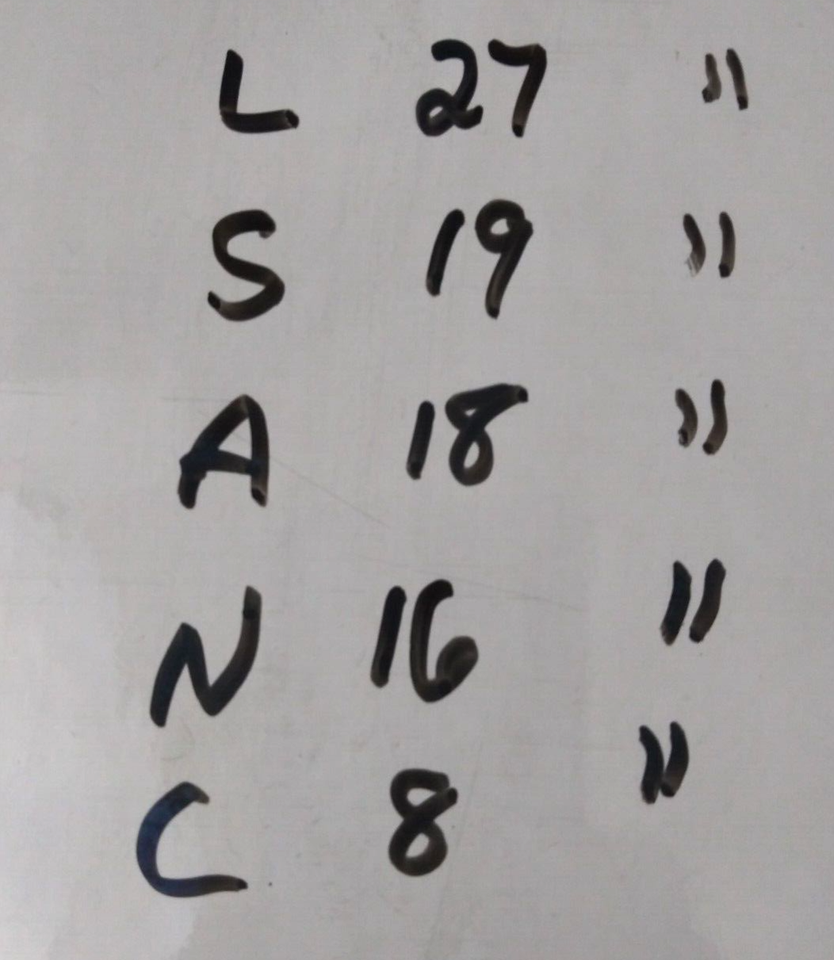 L 27 "
S 19 "
A 18 "
N 16 "
C 8 "